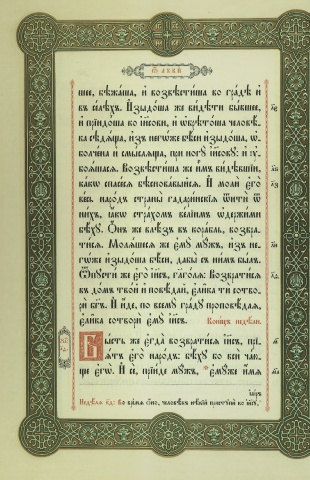 Ѿ лꙋкѝ
шее, бѣжа́ша, и҆ возвѣсти́ша во гра́дѣ и҆
въ се́лѣхъ. И҆зыдо́ша же ви́дѣти бы́вшее,
и҆ прїидо́ша ко і҆и҃сови, и҆ ѡ҆брѣто́ша человѣ́-
ка сѣдѧ́ща, и҆зъ негѡ́же бѣ́си и҆зыдо́ша, ѡ҆-
болче́на и҆ смы́слѧща, при ногꙋ̀ і҆и҃сову: и҆ ᲂу҆-
боѧ́шасѧ. Возвѣсти́ша же и҆̀мъ ви́дѣвшїи,
ка́кѡ спасе́сѧ бѣснова́выйсѧ. И҆ моли́ є҆го̀
ве́сь наро́дъ страны̀ гадари́нскїѧ ѿитѝ ѿ
ни́хъ, ꙗ҆́кѡ стра́хомъ ве́лїимъ ѡ҆держи́ми
бѣ́хꙋ. Ѻ҆́нъ же влѣ́зъ въ кора́бль, возвра-
ти́сѧ. Молѧ́шесѧ же є҆мꙋ̀ мꙋ́жъ, и҆зъ не-
гѡ́же и҆зыдо́ша бѣ́си, дабы̀ съ ни́мъ бы́лъ.
Ѿпꙋсти́ же є҆го̀ і҆и҃съ, глаго́лѧ: Возврати́сѧ
въ до́мъ тво́й и҆ повѣ́дай, є҆ли̑ка тѝ сотво-
рѝ бг҃ъ. И҆ и҆́де, по всемꙋ̀ гра́дꙋ проповѣ́даѧ,
є҆ли̑ка сотворѝ є҆мꙋ̀ і҆и҃съ. Коне́цъ недѣ́ли.
Бы́сть же є҆гда̀ возврати́сѧ і҆и҃съ, прїѧ́-
ѧ́тъ є҆го̀ наро́дъ: бѣ́хꙋ бо всѝ ча́ю-
ще є҆гѡ̀. И҆ сѐ, прїи́де мꙋ́жъ, * є҆мꙋ́же и҆́мѧ
і҆аі́ръ
Недѣ́лѧ к҃д: Во вре́мѧ ѻ҆́но, человѣ́къ нѣ́кїй пристꙋпѝ ко і҆и҃сꙋ,